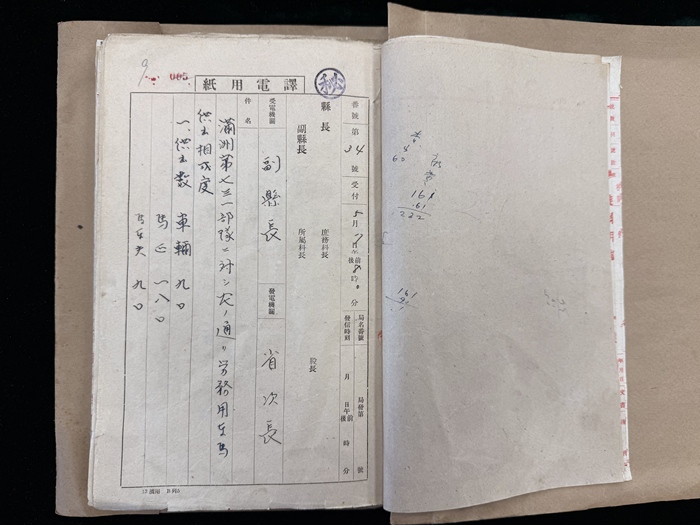 9
005
譯電用紙
秘
番號 第 34 號 受付 5 月 7 日 午前後 8 時 0 分
局名番號 局發第 號
發信時刻 月 日 午前後 時 分
縣長 庶務科長
副縣長 所屬科長 股長
受電機關 副縣長 發電機關 省次長
件名
滿洲第七三一部隊ニ対シ左ノ通リ労務用車馬
供出相成度
一、供出数 車輛 九〇
馬匹 一八〇
馬車夫 九〇
60
161
61
222
161